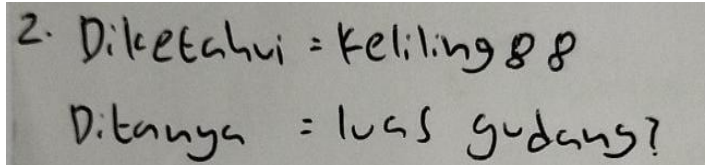 2. Diketahui = Keliling 88
Ditanya = luas gudang?